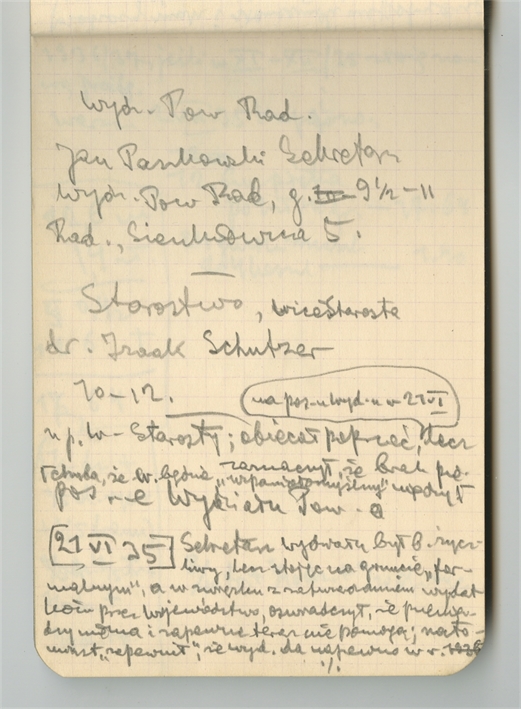 Wydz. Pow Rad.
Jan Paszkowski Sekretarz
Wydz. Pow Rad, g. 9 1/2 - 11
Rad., Sienkiewicza 5.
Starostwo, wicestarosta
dr. Izaak Schutzer
10-12.
na pos-u Wyd-u w 21 VI
u p. w-Starosty; obiecał poprzeć, lecz
zaznaczył, że brak pie-
że b. będzie „wspaniałomyślny"
pos -e Wydziału Pow. a
[21 VI 35] Sekretarz wydziału był b. życz-
liwy, lecz stojąc na gruncie „for-
malnym", a w związku z zatwierdzaniem wydat
ków przez Województwo, oświadczył, że
i zapewne teraz nie pomogą; nato-
miast „zapewnił", że wyd. da napewno w r. 1936
./.